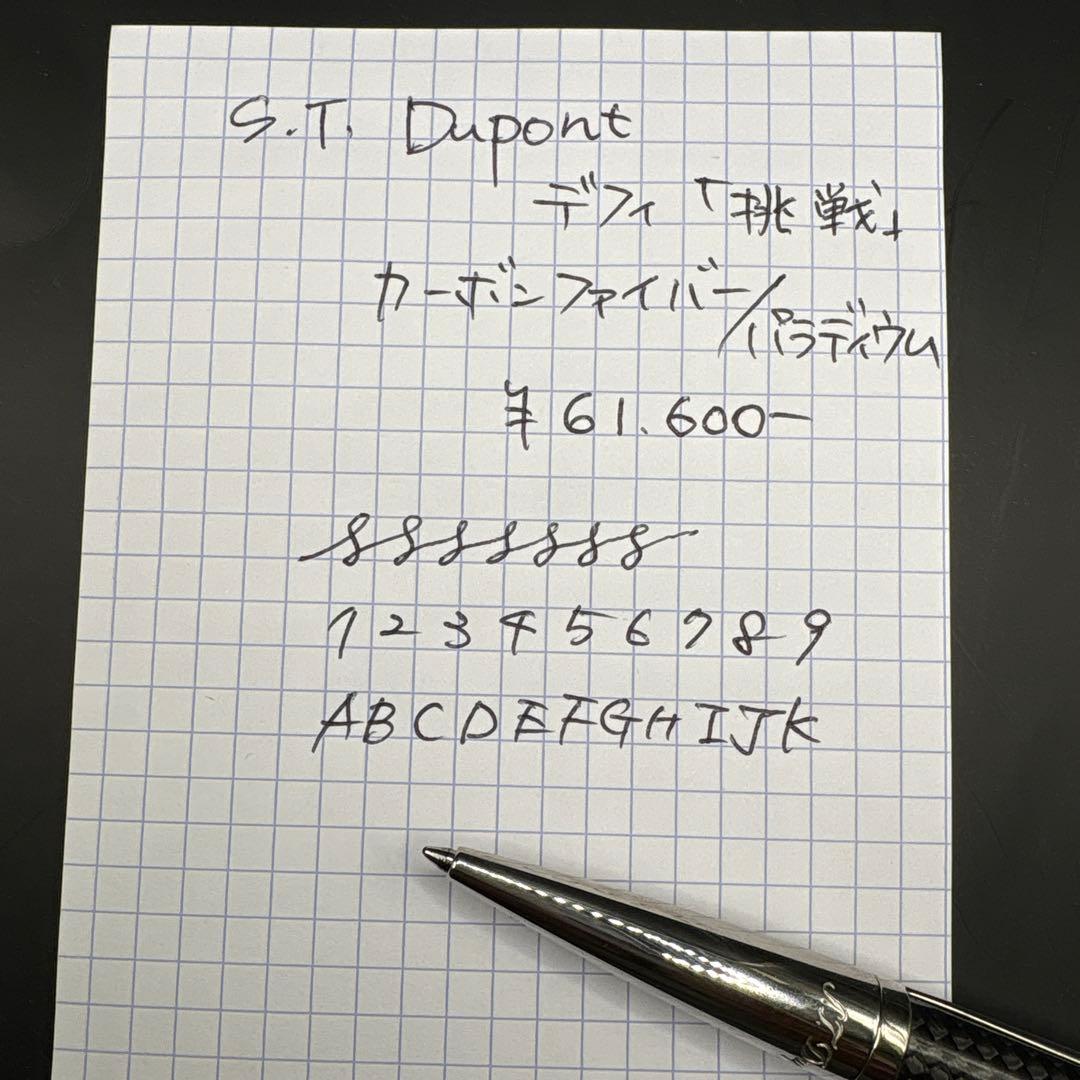 S.T. Dupont
デフィ 「挑戦」
カーボンファイバー/パラディウム
¥61.600-
1 2 3 4 5 6 7 8 9
ABCDEFGHIJK